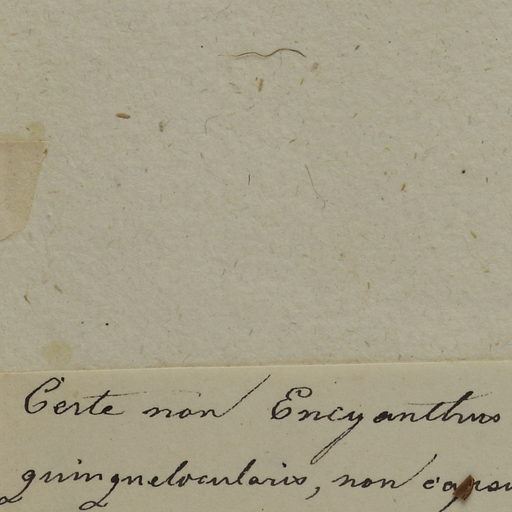 Certe non Encyanthus
quinquelocularis, non capsu